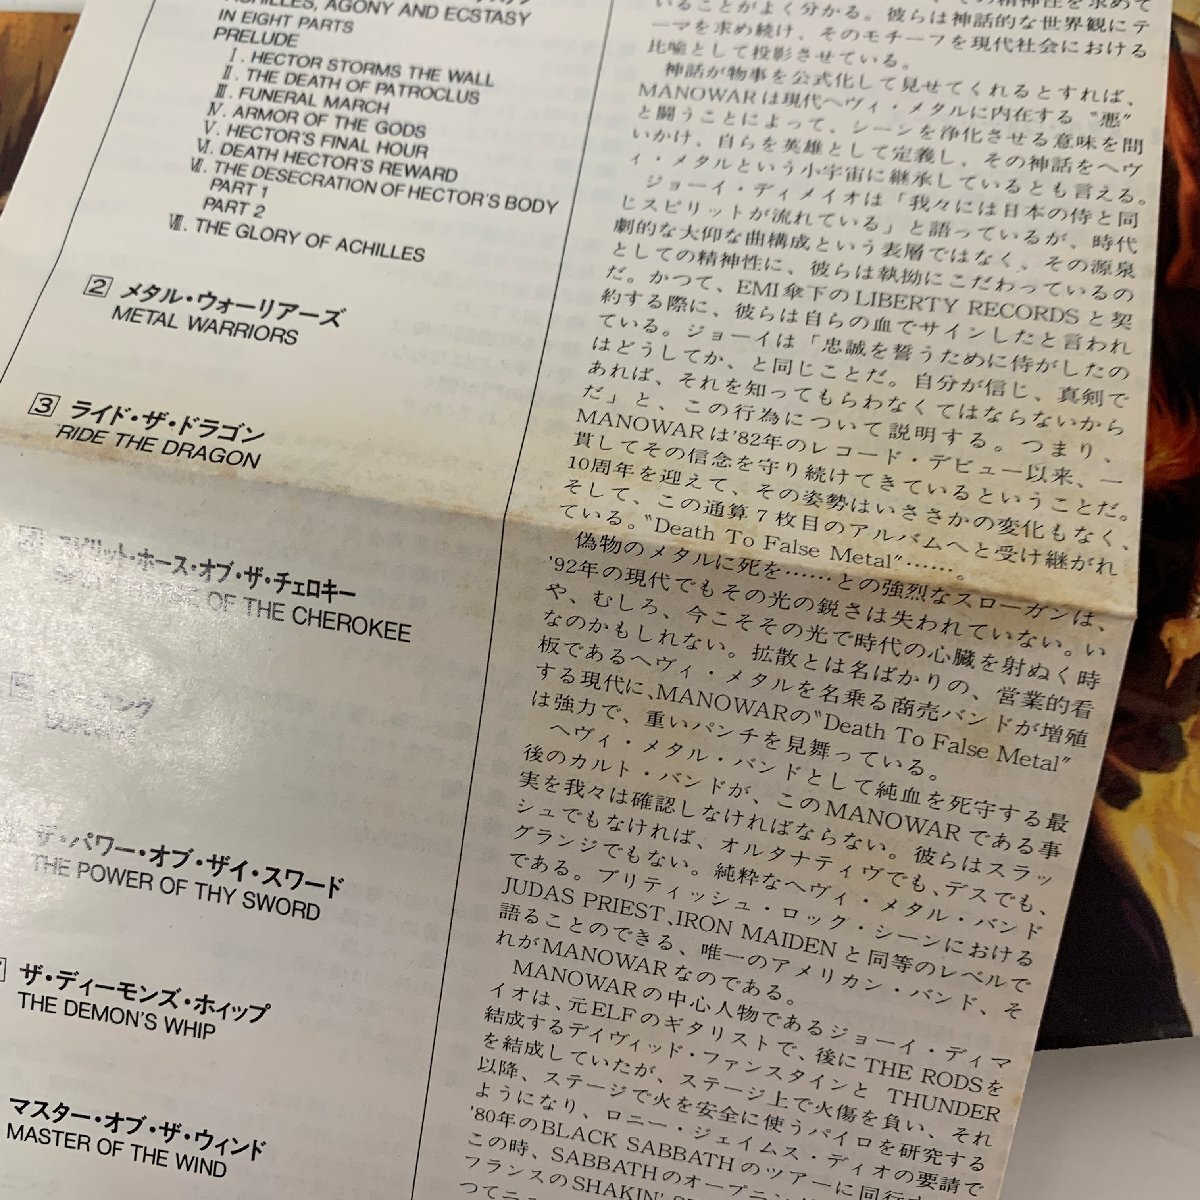 ACHILLES, AGONY AND ECSTASY
IN EIGHT PARTS
PRELUDE
Ⅰ. HECTOR STORMS THE WALL
Ⅱ. THE DEATH OF PATROCLUS
Ⅲ. FUNERAL MARCH
Ⅳ. ARMOR OF THE GODS
Ⅴ. HECTOR'S FINAL HOUR
Ⅵ. DEATH HECTOR'S REWARD
Ⅶ. THE DESECRATION OF HECTOR'S BODY
PART 1
PART 2
Ⅷ. THE GLORY OF ACHILLES
2 メタル・ウォーリアーズ
METAL WARRIORS
3 ライド・ザ・ドラゴン
RIDE THE DRAGON
4 スピリット・ホース・オブ・ザ・チェロキー
OF THE CHEROKEE
5
ザ・パワー・オブ・ザイ・スワード
THE POWER OF THY SWORD
ザ・ディーモンズ・ホイップ
THE DEMON'S WHIP
マスター・オブ・ザ・ウィンド
MASTER OF THE WIND
いることがよく分かる。彼らは神話的な世界観にテ
ーマを求め続け、そのモチーフを現代社会における
比喩として投影させている。
神話が物事を公式化して見せてくれるとすれば、
MANOWARは現代ヘヴィ・メタルに内在する〝悪〟
と闘うことによって、シーンを浄化させる意味を問
いかけ、自らを英雄として定義し、その神話をヘヴ
ィ・メタルという小宇宙に継承しているとも言える。
ジョーイ・ディメイオは「我々には日本の侍と同
じスピリットが流れている」と語っているが、時代
劇的な大仰な曲構成という表層ではなく、その源泉
としての精神性に、彼らは執拗にこだわっているの
だ。かつて、EMI傘下のLIBERTY RECORDSと契
約する際に、彼らは自らの血でサインしたと言われ
ている。ジョーイは「忠誠を誓うために侍がしたの
はどうしてか、と同じことだ。自分が信じ、真剣で
あれば、それを知ってもらわなくてはならないから
だ」と、この行為について説明する。つまり、
MANOWARは'82年のレコード・デビュー以来、一
貫してその信念を守り続けてきているということだ。
10周年を迎えて、その姿勢はいささかの変化もなく、
そして、この通算7枚目のアルバムへと受け継がれ
ている。〝Death To False Metal〟……。
偽物のメタルに死を……との強烈なスローガンは、
'92年の現代でもその光の鋭さは失われていない。い
や、むしろ、今こそその光で時代の心臓を射ぬく時
なのかもしれない。拡散とは名ばかりの、営業的看
板であるヘヴィ・メタルを名乗る商売バンドが増殖
する現代に、MANOWARの〝Death To False Metal〟
は強力で、重いパンチを見舞っている。
ヘヴィ・メタル・バンドとして純血を死守する最
後のカルト・バンドが、このMANOWARである事
実を我々は確認しなければならない。彼らはスラッ
シュでもなければ、オルタナティヴでも、デスでも、
グランジでもない。純粋なヘヴィ・メタル・バンド
である。ブリティッシュ・ロック・シーンにおける
JUDAS PRIEST、IRON MAIDENと同等のレベルで
語ることのできる、唯一のアメリカン・バンド、そ
れがMANOWARなのである。
MANOWARの中心人物であるジョーイ・ディマ
イオは、元ELFのギタリストで、後にTHE RODSを
結成するデイヴィッド・ファンスタインと THUNDER
を結成していたが、ステージ上で火傷を負い、それ
以降、ステージで火を安全に使うパイロを研究する
ようになり、ロニー・ジェイムス・ディオの要請で
'80年のBLACK SABBATHのツアーに同行
この時、SABBATHのオープニング
フランスのSHAKIN'